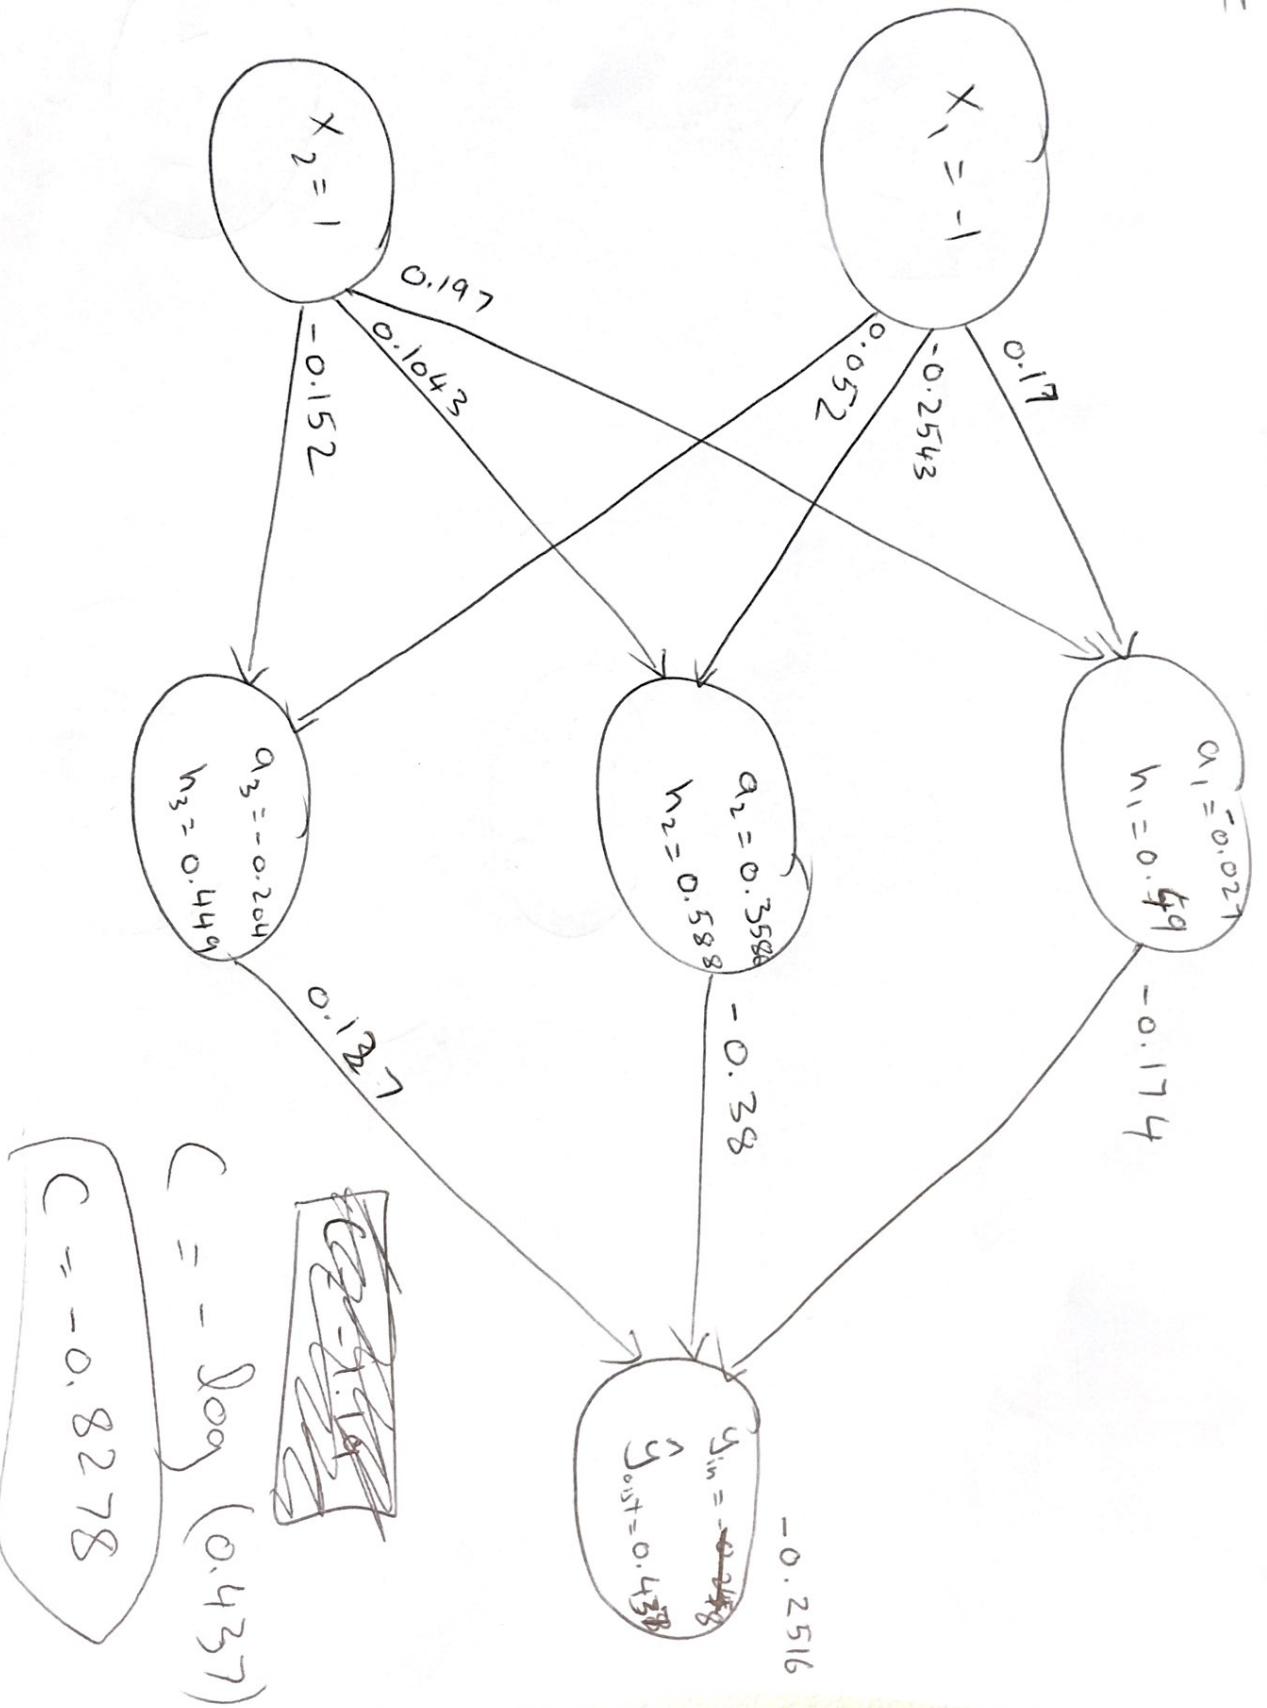 x₁ = -1
0.17
-0.2543
0.052
x₂ = 1
0.197
0.1043
-0.152
a₁ = -0.027
h₁ = 0.49
a₂ = 0.3586
h₂ = 0.588
a₃ = -0.204
h₃ = 0.449
-0.174
-0.38
0.1327
-0.2516
yin =
ŷout = 0.438
C = -log (0.437)
C = -0.8278